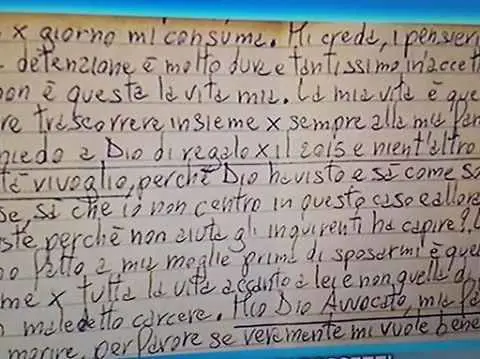 x giorno mi consuma. Mi creda, i pensieri
detenzione è molto dura e tantissimo inaccett
non è questa la vita mia. La mia vita è que
re trascorrere insieme x sempre alla mia fam
hiedo a Dio di regalo x il 2015 e nient'altro
tà rivoglio, perchè Dio ha visto e sà come so
se, sà che io non centro in questo caso e allora
ste perchè non aiuta gli inquirenti ha capire?. L
ho fatto a mia moglie prima di sposarmi è quel
me x tutta la vita accanto a lei e non quella di
maledetto carcere. Mio Dio Avvocato, mia fa
morire, per favore se veramente mi vuole bene